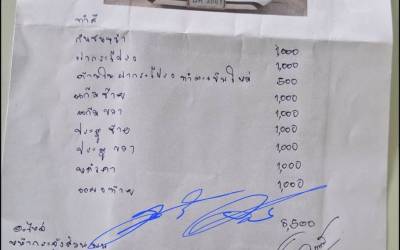 ทำสี
กันชนหน้า 1,000
ฝากระโปรง 1,000
ด้านใน ฝากระโปรง ทำ ใหม่ 500
แก้มซ้าย 1,000
แก้มขวา 1,000
ประตู ซ้าย 1,000
ประตู ขวา 1,000
หลังคา 1,000
1,000
อะไหล่ 8,500